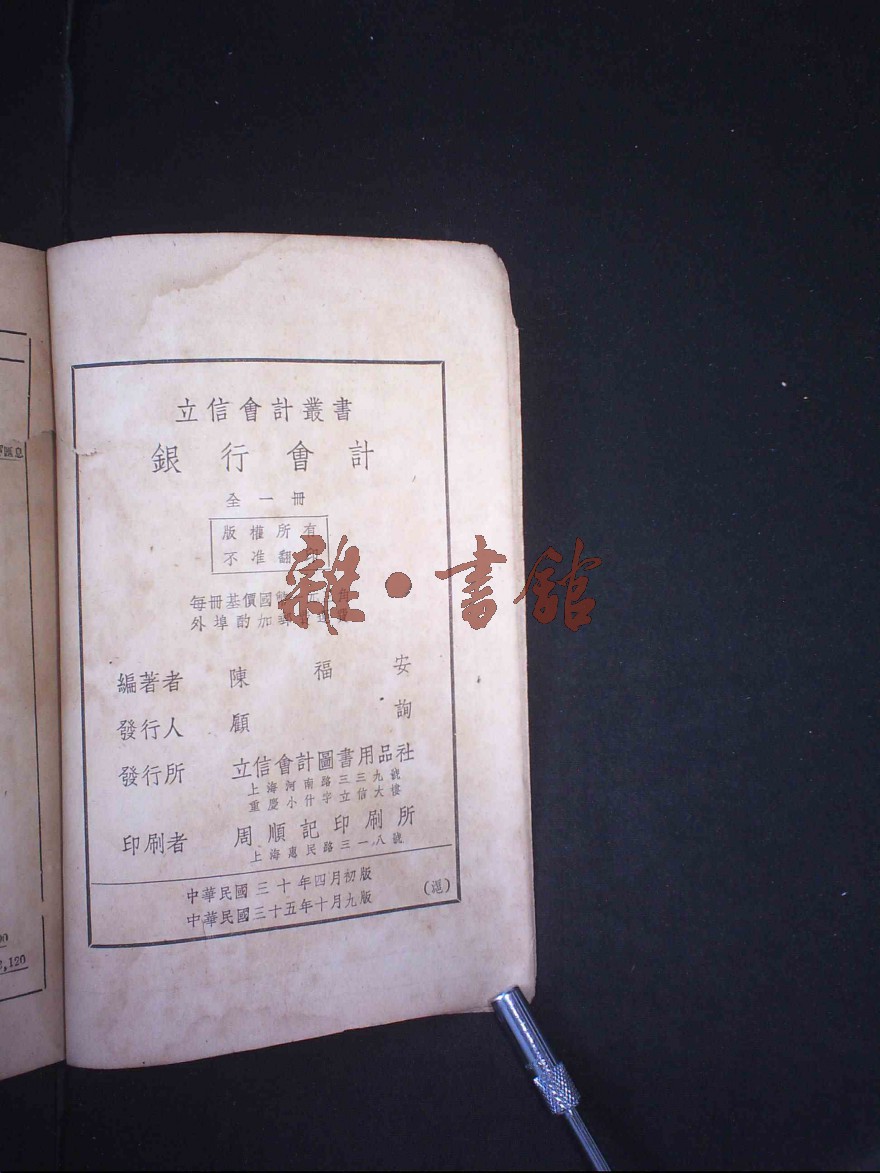 立信會計叢書
銀行會計
全一冊
版權所有
不准翻
每冊基價國幣
外埠酌加
編著者 陳福安
發行人 顧詢
發行所 立信會計圖書用品社
上海河南路三三九號
重慶小什字立信大樓
印刷者 周順記印刷所
上海惠民路三一八號
中華民國三十年四月初版
中華民國三十五年十月九版
(遥)
雜·書館
匯息
00
,120